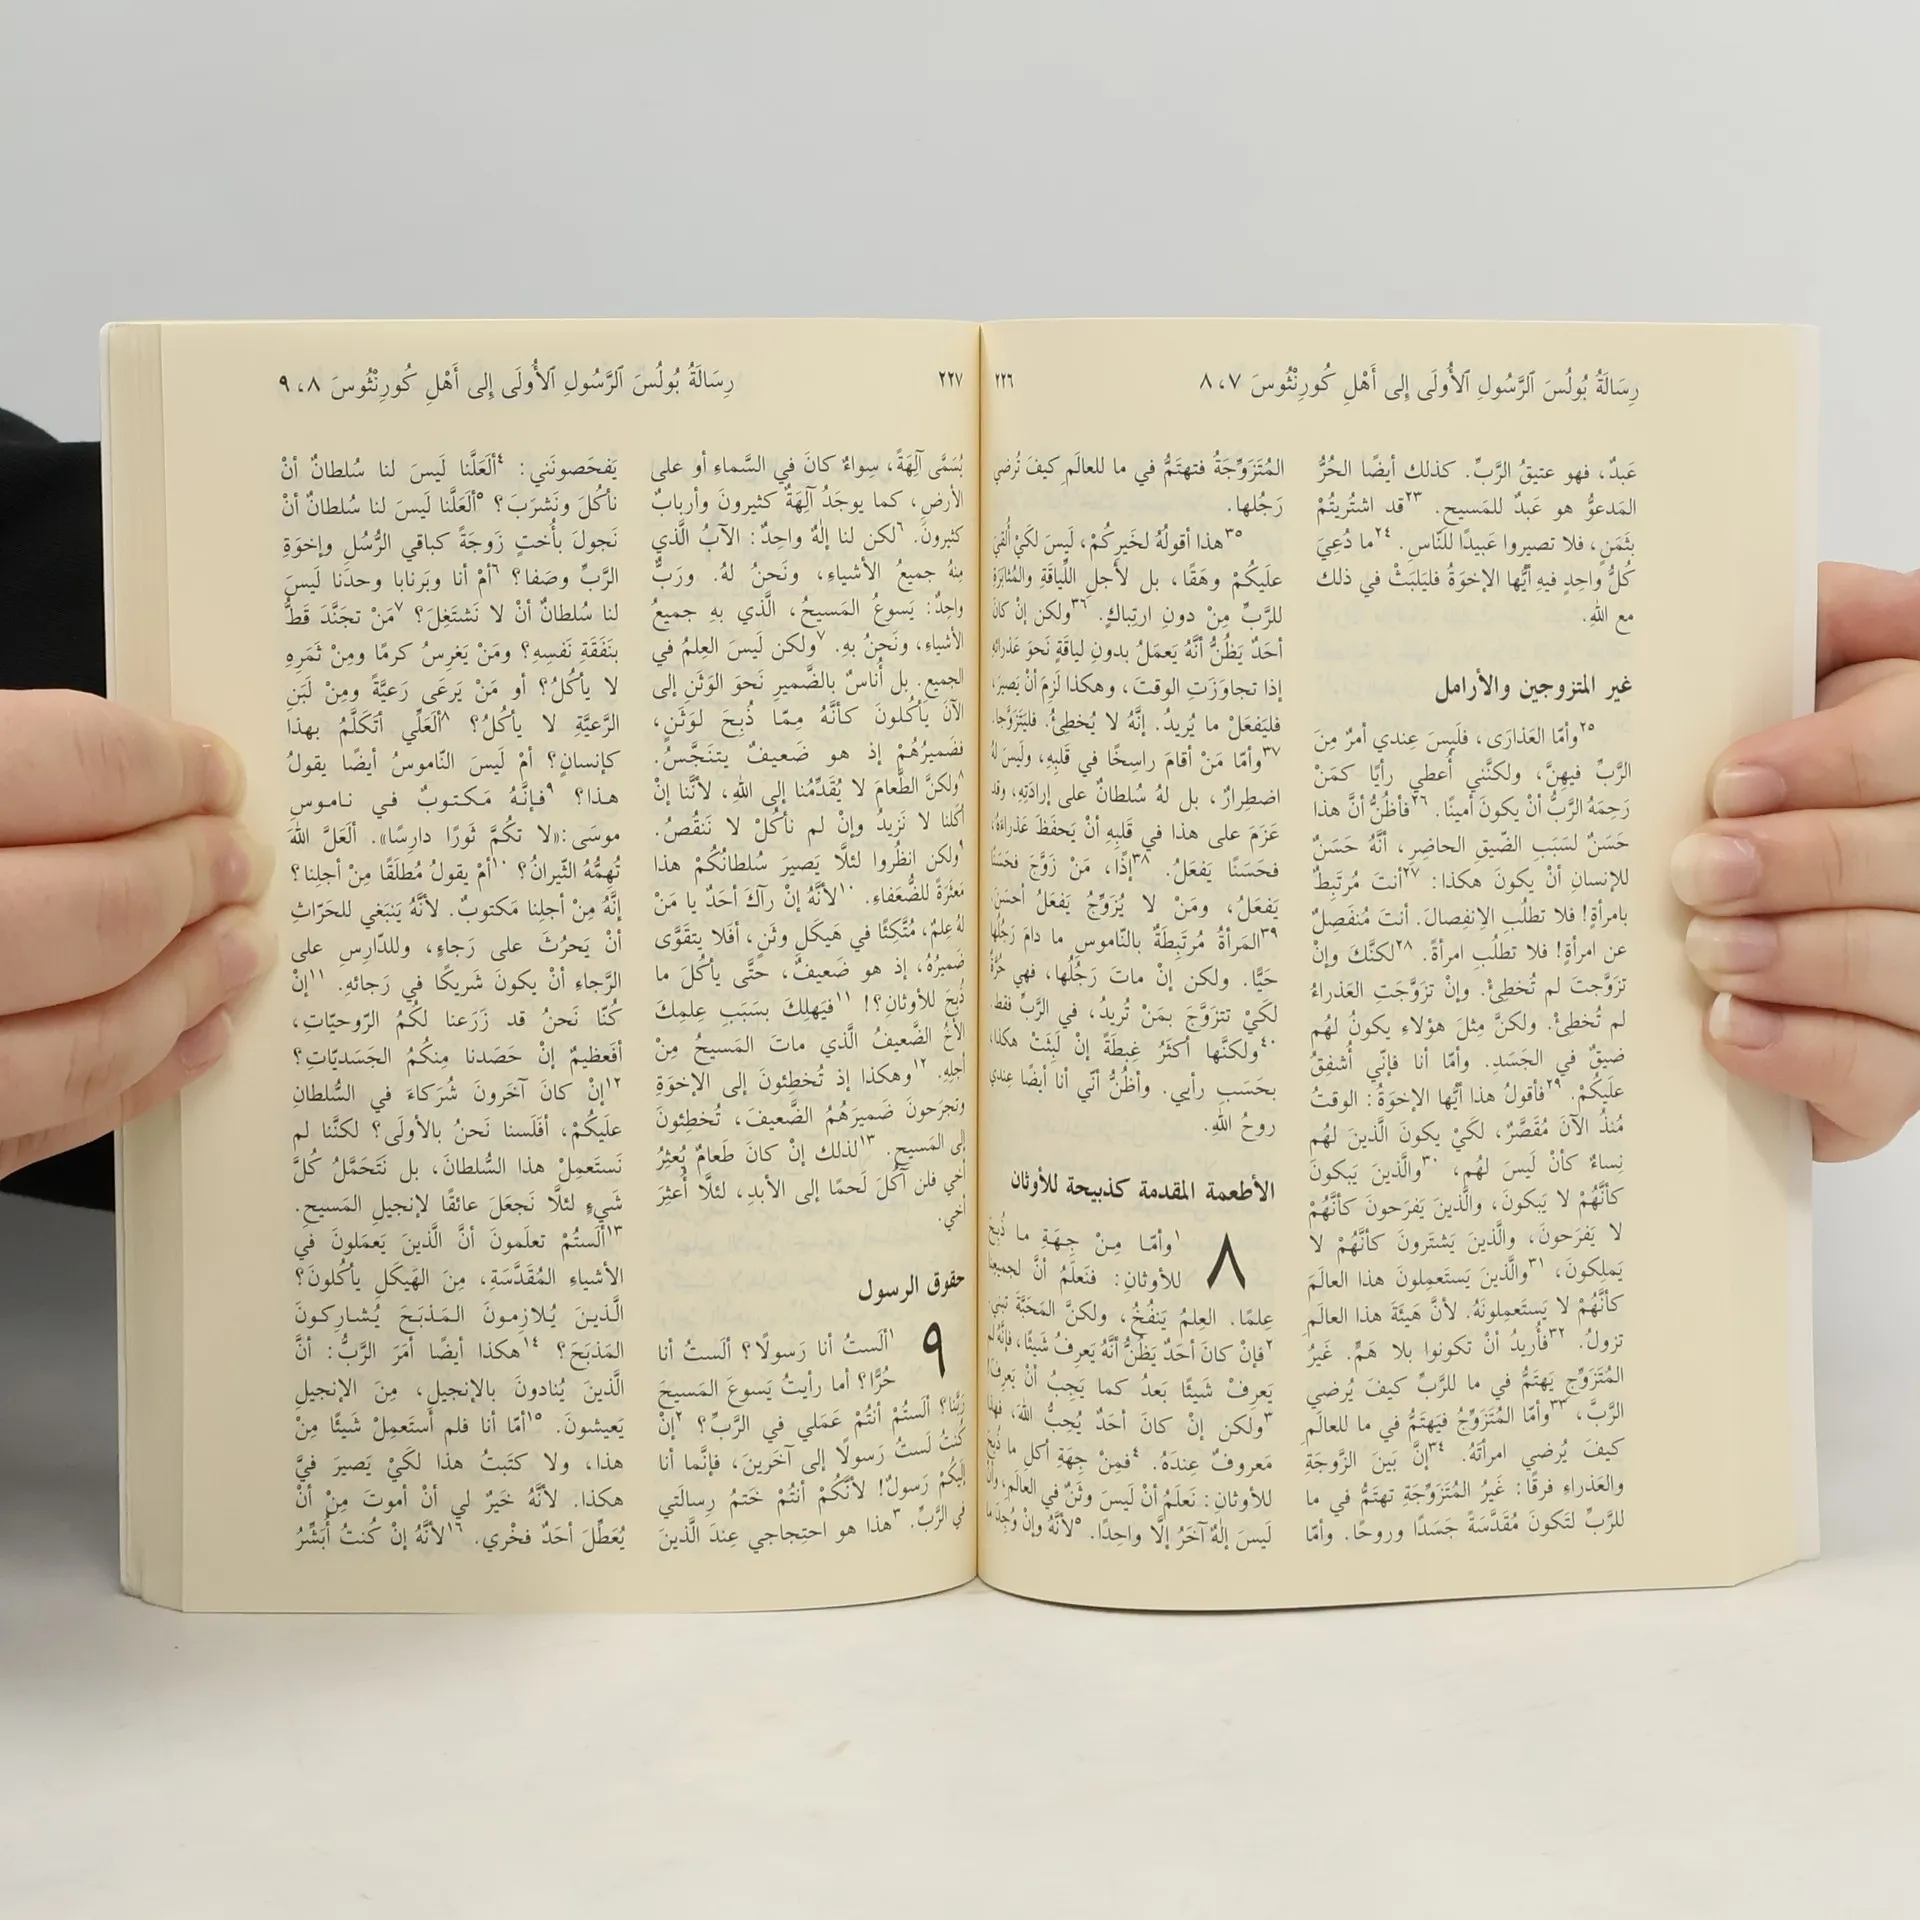 رِسَالَةُ بُولُسَ ٱلرَّسُولِ ٱلأُولَى إِلى أَهْلِ كُورِنْثُوسَ ٧، ٨
٢٢٦
عَبدٌ، فهو عتيقُ الرَّبِّ. كذلك أيضًا الحُرُّ
المَدعوُّ هو عَبدٌ للمَسيحِ. ٢٣قد اشتُريتُمْ
بثَمَنٍ، فلا تصيروا عَبيدًا للنّاسِ. ٢٤ما دُعِيَ
كُلُّ واحِدٍ فيهِ أيُّها الإخوَةُ فليَلبَثْ في ذلك
مع اللهِ.
غير المتزوجين والأرامل
٢٥وأمّا العَذارَى، فلَيسَ عِندي أمرٌ مِنَ
الرَّبِّ فيهِنَّ، ولكنَّني أُعطي رأيًا كمَنْ
رَحِمَهُ الرَّبُّ أنْ يكونَ أمينًا. ٢٦فأظُنُّ أنَّ هذا
حَسَنٌ لسَبَبِ الضّيقِ الحاضِرِ، أنَّهُ حَسَنٌ
للإنسانِ أنْ يكونَ هكذا: ٢٧أنتَ مُرتَبِطٌ
بامرأةٍ! فلا تطلُبِ الِانفِصالَ. أنتَ مُنفَصِلٌ
عن امرأةٍ! فلا تطلُبِ امرأةً. ٢٨لكنَّكَ وإنْ
تزَوَّجتَ لم تُخطِئْ. وإنْ تزَوَّجَتِ العَذراءُ
لم تُخطِئْ. ولكنَّ مِثلَ هؤلاءِ يكونُ لهُم
ضيقٌ في الجَسَدِ. وأمّا أنا فإنّي أُشفِقُ
علَيكُمْ. ٢٩فأقولُ هذا أيُّها الإخوَةُ: الوقتُ
مُنذُ الآنَ مُقَصَّرٌ، لكَيْ يكونَ الَّذينَ لهُم
نِساءٌ كأنْ لَيسَ لهُم، ٣٠والَّذينَ يَبكونَ
كأنَّهُمْ لا يَبكونَ، والَّذينَ يَفرَحونَ كأنَّهُمْ
لا يَفرَحونَ، والَّذينَ يَشتَرونَ كأنَّهُمْ لا
يَملِكونَ، ٣١والَّذينَ يَستَعمِلونَ هذا العالَمَ
كأنَّهُمْ لا يَستَعمِلونَهُ. لأنَّ هَيئَةَ هذا العالَمِ
تزولُ. ٣٢فأُريدُ أنْ تكونوا بلا هَمٍّ. غَيرُ
المُتَزَوِّجِ يَهتَمُّ في ما للرَّبِّ كيفَ يُرضي
الرَّبَّ، ٣٣وأمّا المُتَزَوِّجُ فيَهتَمُّ في ما للعالَمِ
كيفَ يُرضي امرأتَهُ. ٣٤إنَّ بَينَ الزَّوجَةِ
والعَذراءِ فرقًا: غَيرُ المُتَزَوِّجَةِ تهتَمُّ في ما
للرَّبِّ لتَكونَ مُقَدَّسَةً جَسَدًا وروحًا. وأمّا
المُتَزَوِّجَةُ فتهتَمُّ في ما للعالَمِ كيفَ تُرضي
رَجُلها.
٣٥هذا أقولُهُ لخَيرِكُمْ، لَيسَ لكَيْ أُلقيَ
علَيكُمْ وهَقًا، بل لأجلِ اللّياقَةِ والمُثابَرَةِ
للرَّبِّ مِنْ دونِ ارتِباكٍ. ٣٦ولكن إنْ كانَ
أحَدٌ يَظُنُّ أنَّهُ يَعمَلُ بدونِ لياقَةٍ نَحوَ عَذرائهِ
إذا تجاوَزَتِ الوقتَ، وهكذا لَزِمَ أنْ يَصيرَ،
فليَفعَلْ ما يُريدُ. إنَّهُ لا يُخطِئُ. فليَتَزَوَّجا.
٣٧وأمّا مَنْ أقامَ راسِخًا في قَلبِهِ، ولَيسَ لهُ
اضطِرارٌ، بل لهُ سُلطانٌ على إرادَتِهِ، وقد
عَزَمَ على هذا في قَلبِهِ أنْ يَحفَظَ عَذراءَهُ،
فحَسَنًا يَفعَلُ. ٣٨إذًا، مَنْ زَوَّجَ فحَسَنًا
يَفعَلُ، ومَنْ لا يُزَوِّجُ يَفعَلُ أحسَنَ.
٣٩المَرأةُ مُرتَبِطَةٌ بالنّاموسِ ما دامَ رَجُلُها
حَيًّا. ولكن إنْ ماتَ رَجُلُها، فهي حُرَّةٌ
لكَيْ تتزَوَّجَ بمَنْ تُريدُ، في الرَّبِّ فقط.
٤٠ولكنَّها أكثَرُ غِبطَةً إنْ لَبِثَتْ هكذا،
بحَسَبِ رأيي. وأظُنُّ أنّي أنا أيضًا عِندي
روحُ اللهِ.
الأطعمة المقدمة كذبيحة للأوثان
٨ ١وأمّا مِنْ جِهَةِ ما ذُبِحَ
للأوثانِ: فنَعلَمُ أنَّ لجميعِنا
عِلمًا. العِلمُ يَنفُخُ، ولكنَّ المَحَبَّةَ تبني.
٢فإنْ كانَ أحَدٌ يَظُنُّ أنَّهُ يَعرِفُ شَيئًا، فإنَّهُ لم
يَعرِفْ شَيئًا بَعدُ كما يَجِبُ أنْ يَعرِفَ!
٣ولكن إنْ كانَ أحَدٌ يُحِبُّ اللهَ، فهذا
مَعروفٌ عِندَهُ. ٤فمِنْ جِهَةِ أكلِ ما ذُبِحَ
للأوثانِ: نَعلَمُ أنْ لَيسَ وثَنٌ في العالَمِ، وأنْ
لَيسَ إلهٌ آخَرُ إلّا واحِدًا. ٥لأنَّهُ وإنْ وُجِدَ ما
رِسَالَةُ بُولُسَ ٱلرَّسُولِ ٱلأُولَى إِلى أَهْلِ كُورِنْثُوسَ ٨، ٩
٢٢٧
يُسَمَّى آلِهَةً، سِواءٌ كانَ في السَّماءِ أو على
الأرضِ، كما يوجَدُ آلِهَةٌ كثيرونَ وأربابٌ
كثيرونَ. ٦لكن لنا إلهٌ واحِدٌ: الآبُ الَّذي
مِنهُ جميعُ الأشياءِ، ونَحنُ لهُ. ورَبٌّ
واحِدٌ: يَسوعُ المَسيحُ، الَّذي بهِ جميعُ
الأشياءِ، ونَحنُ بهِ. ٧ولكن لَيسَ العِلمُ في
الجميعِ. بل أُناسٌ بالضَّميرِ نَحوَ الوَثَنِ إلى
الآنَ يأكُلونَ كأنَّهُ مِمّا ذُبِحَ لوَثَنٍ،
فضَميرُهُمْ إذ هو ضَعيفٌ يتنَجَّسُ.
٨ولكنَّ الطَّعامَ لا يُقَدِّمُنا إلى اللهِ، لأنَّنا إنْ
أكَلنا لا نَزيدُ وإنْ لم نأكُلْ لا نَنقُصُ.
٩ولكن انظُروا لئلّا يَصيرَ سُلطانُكُمْ هذا
مَعثَرَةً للضُّعَفاءِ. ١٠لأنَّهُ إنْ رآكَ أحَدٌ يا مَنْ
لهُ عِلمٌ، مُتَّكِئًا في هَيكَلِ وثَنٍ، أفَلا يتقَوَّى
ضَميرُهُ، إذ هو ضَعيفٌ، حتَّى يأكُلَ ما
ذُبِحَ للأوثانِ؟! ١١فيَهلِكَ بسَبَبِ عِلمِكَ
الأخُ الضَّعيفُ الَّذي ماتَ المَسيحُ مِنْ
أجلِهِ. ١٢وهكذا إذ تُخطِئونَ إلى الإخوَةِ
وتجرَحونَ ضَميرَهُمُ الضَّعيفَ، تُخطِئونَ
إلى المَسيحِ. ١٣لذلك إنْ كانَ طَعامٌ يُعثِرُ
أخي فلن آكُلَ لَحمًا إلى الأبدِ، لئلّا أُعثِرَ
أخي.
حقوق الرسول
٩ ١ألَستُ أنا رَسولًا؟ ألَستُ أنا
حُرًّا؟ أما رأيتُ يَسوعَ المَسيحَ
رَبَّنا؟ ألَستُمْ أنتُمْ عَمَلي في الرَّبِّ؟ ٢إنْ
كُنتُ لَستُ رَسولًا إلى آخَرينَ، فإنَّما أنا
إلَيكُمْ رَسولٌ! لأنَّكُمْ أنتُمْ خَتمُ رِسالَتي
في الرَّبِّ. ٣هذا هو احتِجاجي عِندَ الَّذينَ
يَفحَصونَني: ٤ألَعَلَّنا لَيسَ لنا سُلطانٌ أنْ
نأكُلَ ونَشرَبَ؟ ٥ألَعَلَّنا لَيسَ لنا سُلطانٌ أنْ
نَجولَ بأُختٍ زَوجَةً كباقي الرُّسُلِ وإخوَةِ
الرَّبِّ وصَفا؟ ٦أمْ أنا وبَرنابا وحدَنا لَيسَ
لنا سُلطانٌ أنْ لا نَشتَغِلَ؟ ٧مَنْ تجَنَّدَ قَطُّ
بنَفَقَةِ نَفسِهِ؟ ومَنْ يَغرِسُ كرمًا ومِنْ ثَمَرِهِ
لا يأكُلُ؟ أو مَنْ يَرعَى رَعيَّةً ومِنْ لَبَنِ
الرَّعيَّةِ لا يأكُلُ؟ ٨ألَعَلّي أتَكلَّمُ بهذا
كإنسانٍ؟ أمْ لَيسَ النّاموسُ أيضًا يقولُ
هذا؟ ٩فإنَّهُ مَكتوبٌ في ناموسِ
موسَى:«لا تكُمَّ ثَورًا دارِسًا». ألَعَلَّ اللهَ
تُهِمُّهُ الثّيرانُ؟ ١٠أمْ يقولُ مُطلَقًا مِنْ أجلِنا؟
إنَّهُ مِنْ أجلِنا مَكتوبٌ. لأنَّهُ يَنبَغي للحَرّاثِ
أنْ يَحرُثَ على رَجاءٍ، وللدّارِسِ على
الرَّجاءِ أنْ يكونَ شَريكًا في رَجائهِ. ١١إنْ
كُنّا نَحنُ قد زَرَعنا لكُمُ الرّوحيّاتِ،
أفَعَظيمٌ إنْ حَصَدنا مِنكُمُ الجَسَديّاتِ؟
١٢إنْ كانَ آخَرونَ شُرَكاءَ في السُّلطانِ
علَيكُمْ، أفَلَسنا نَحنُ بالأولَى؟ لكنَّنا لم
نَستَعمِلْ هذا السُّلطانَ، بل نَتَحَمَّلُ كُلَّ
شَيءٍ لئلّا نَجعَلَ عائقًا لإنجيلِ المَسيحِ.
١٣ألَستُمْ تعلَمونَ أنَّ الَّذينَ يَعمَلونَ في
الأشياءِ المُقَدَّسَةِ، مِنَ الهَيكَلِ يأكُلونَ؟
الَّذينَ يُلازِمونَ المَذبَحَ يُشارِكونَ
المَذبَحَ؟ ١٤هكذا أيضًا أمَرَ الرَّبُّ: أنَّ
الَّذينَ يُنادونَ بالإنجيلِ، مِنَ الإنجيلِ
يَعيشونَ. ١٥أمّا أنا فلم أستَعمِلْ شَيئًا مِنْ
هذا، ولا كتَبتُ هذا لكَيْ يَصيرَ فيَّ
هكذا. لأنَّهُ خَيرٌ لي أنْ أموتَ مِنْ أنْ
يُعَطِّلَ أحَدٌ فخْري. ١٦لأنَّهُ إنْ كُنتُ أُبَشِّرُ